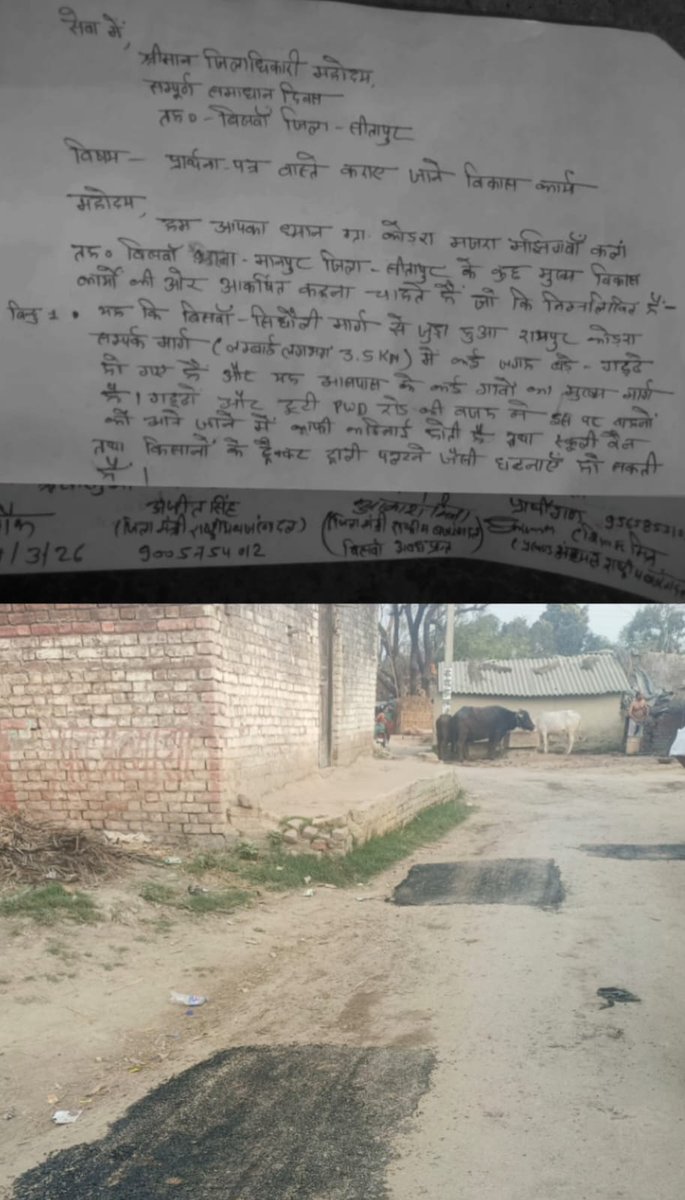 सेवा में,
श्रीमान जिलाधिकारी महोदय,
सम्पूर्ण समाधान दिवस
तह० - बिसवाँ जिला - सीतापुर
विषय - प्रार्थना-पत्र वास्ते कराए जाने विकास कार्य
महोदय,
हम आपका ध्यान ग्रा. कोड़रा मजरा मझिगवाँ कलां
तह० बिसवाँ थाना - मानपुर जिला - सीतापुर के कुछ मुख्य विकास
कार्यों की ओर आकर्षित कराना चाहते हैं जो कि निम्नलिखित हैं:-
बिन्दु 1. यह कि बिसवाँ - सिधौली मार्ग से जुड़ा हुआ रामपुर कोड़रा
सम्पर्क मार्ग (लम्बाई लगभग 3.5 KM) में कई जगह बड़े - गड्ढे
हो गए हैं और यह आसपास के कई गावों का मुख्य मार्ग
है। गड्ढों और टूटी PWD रोड की वजह से इस पर वाहनों
को आने जाने में काफी कठिनाई होती है तथा स्कूली वैन
तथा किसानों के ट्रैक्टर ट्राली पलटने जैसी घटनाएँ हो सकती
हैं।
/3/26
अजीत सिंह
(जिला मंत्री राष्ट्रीय बजरंग दल)
9005754012
(जिला मंत्री राष्ट्रीय बजरंग दल)
बिसवाँ
प्रार्थीगण